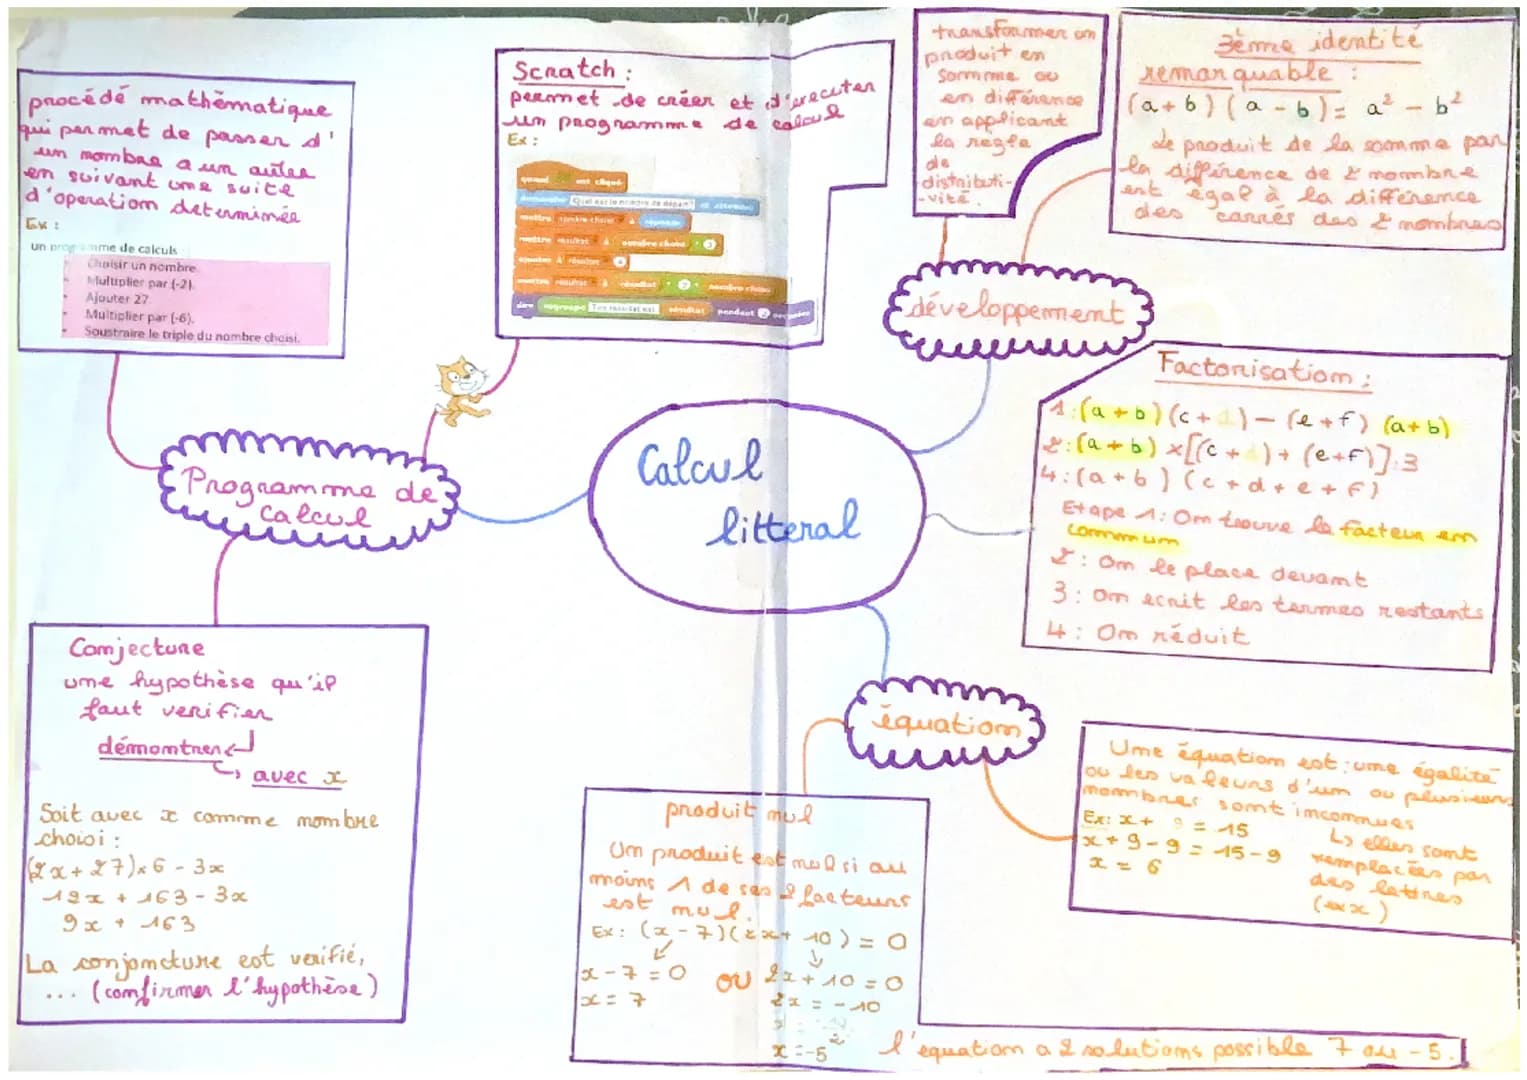 procédé mathématique
qui permet de passer d'
un nombre a un autre
en suivant une suite
d'operation determinée
Ex :
un programme de calculs :
Choisir un nombre.
Multiplier par (-2).
Ajouter 27.
Multiplier par (-6).
Soustraire le triple du nombre choisi.
Scratch :
permet de créer et d'executer
un programme de calcul
Ex :
quand est cliqué
demander Quel est le nombre de départ? et attendre
mettre nombre choisi à réponse
mettre résultat à nombre choisi
ajouter à résultat
mettre résultat à résultat nombre choisi
dire regroupe Ton résultat est résultat pendant 2 secondes
transformer un
produit en
somme ou
en différence
en applicant
la regle
de
distributi-
-vité.
3ème identité
remarquable :
(a+b)(a-b) = a² - b²
Le produit de la somme par
la différence de 2 nombre
est égal à la différence
des carrés des 2 nombres
développement
Factorisation :
1:(a+b)(c+d)-(e+f)(a+b)
2:(a+b)×[(c+d)+(e+f)]:3
4:(a+b)(c+d+e+f)
Etape 1: On trouve le facteur en
commun
2: On le place devant
3: on ecrit les termes restants
4: On réduit
Calcul
litteral
Programme de
calcul
Conjecture
une hypothèse qu'il
faut verifier
démontrer
avec x
Soit avec x comme nombre
choisi :
(2x+27)×6-3x
12x+163-3x
9x+163
La conjoncture est verifié,
... (confirmer l'hypothèse)
équation
Une équation est: une égalité
ou les valeurs d'un ou plusieurs
nombres sont inconnues
Ex: x+9=15
x+9-9=15-9
x=6
↳ elles sont
remplacées par
des lettres
(ex x)
produit nul
Un produit est nul si au
moins 1 de ses 2 facteurs
est nul.
Ex: (x-7)(2x+10)=0
x-7=0 ou 2x+10=0
x=7 2x=-10
x=-5
l'equation a 2 solutions possible 7 ou -5.